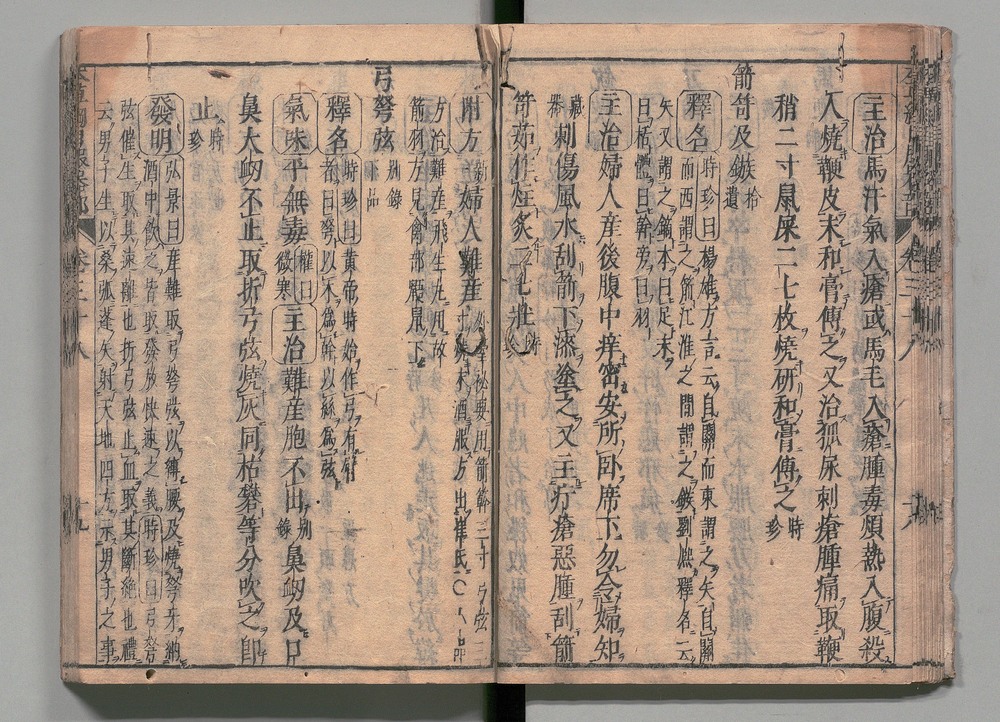 主治馬汗氣入瘡或馬毛入瘡腫毒煩熱入腹殺
人燒鞭皮末和膏傅之又治狐尿刺瘡腫痛取鞭
稍二寸鼠屎二七枚燒研和膏傅之時珍
箭笴及鏃拾遺
釋名時珍曰楊雄方言云自關而東謂之矢自關
而西謂之箭江淮之間謂之鏃劉熙釋名云
矢又謂之鏑本曰足末
曰栝體曰幹旁曰羽
主治婦人產後腹中痒密安所臥席下勿令婦知
藏器刺傷風水刮箭下漆塗之又主疔瘡惡腫刮箭
笴茹作炷灸二七壯時珍
附方婦人難產外臺秘要用箭幹三寸弓弦三
寸燒末酒服方出崔氏○
方治難産飛生丸用故
箭羽方見禽部鼯鼠下
弓弩弦別錄
釋名時珍曰黃帝時始作弓有臂
者曰弩以木爲幹以絲爲弦
氣味平無毒權曰微寒主治難産胞不出別錄鼻衄及口
鼻大衄不止取折弓弦燒灰同枯礬等分吹之即
止時珍
發明弘景曰産難取弓弩弦以縛腰及燒弩牙納
酒中飲之皆取發放快速之義時珍曰弓弩
弦催生取其速離也折弓弦止血取其斷絶也禮
云男子生以桑弧蓬矢射天地四方示男子之事
卷三十八